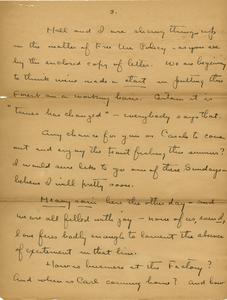 3.
Hall and I are shaking things up
in the matter of Free Use Policy - as you see
by the enclosed copy of letter. We are beginning
to think mine made a start in putting this
Forest on a working basis. Certain it is
"times has changed" - everybody says that.
Any chance for you or Carol to come
out and enjoy the Forest feeling this summer?
I would sure like to you one of these Sundays
believe I will pretty soon.
Heavy rain here the other day - and
we are all filled with joy - none of us
love fires badly enough to lament the absence
of excitement in that line.
How is business at the Factory?
And when is Carl coming home? And how